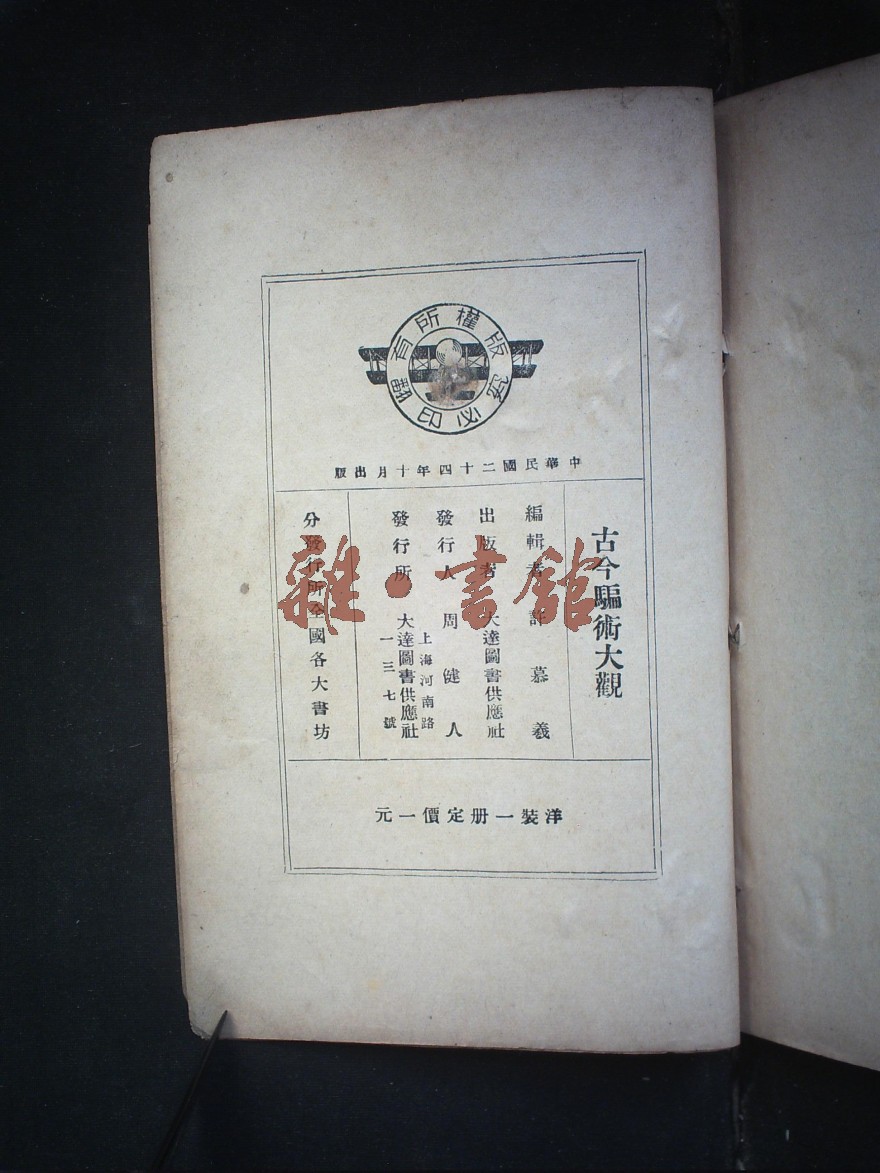 版權所有
翻印必究
中華民國二十四年十月出版
古今騙術大觀
編輯者 許慕羲
出版者 大達圖書供應社
發行人 周健人
發行所 大達圖書供應社
上海河南路
一三七號
分發行所全國各大書坊
洋裝一册定價一元
雜·書館